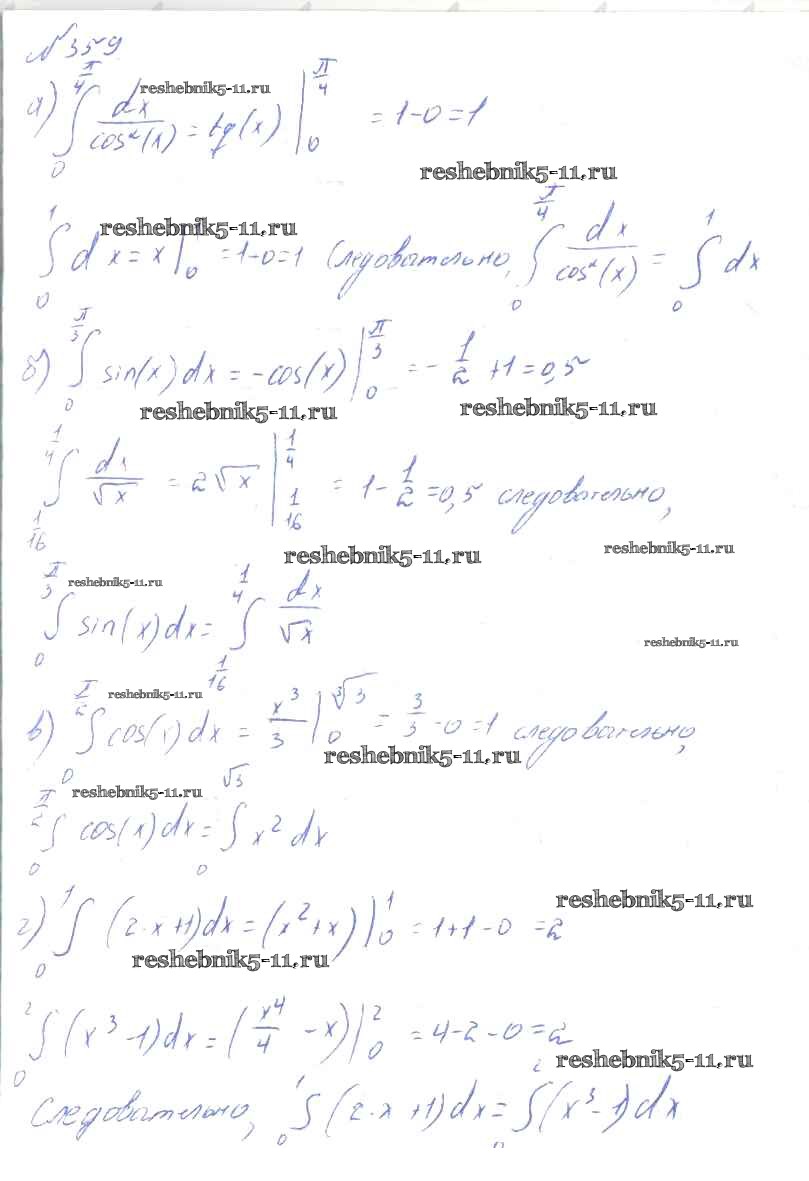 №359
а) ∫₀^{π/4} dx/cos²(x) = tg(x) |₀^{π/4} = 1-0=1
reshebnik5-11.ru
reshebnik5-11.ru
reshebnik5-11.ru
∫₀¹ dx = x |₀ = 1-0=1 Следовательно, ∫₀^{π/4} dx/cos²(x) = ∫₀¹ dx
б) ∫₀^{π/3} sin(x)dx = -cos(x) |₀^{π/3} = -1/2 +1 = 0,5
reshebnik5-11.ru reshebnik5-11.ru
∫_{1/16}^{1/4} dx/√x = 2√x |_{1/16}^{1/4} = 1 - 1/2 = 0,5 следовательно,
reshebnik5-11.ru reshebnik5-11.ru
reshebnik5-11.ru
∫₀^{π/3} sin(x)dx = ∫_{1/16}^{1/4} dx/√x
reshebnik5-11.ru
reshebnik5-11.ru
в) ∫₀^{π/2} cos(x)dx = x³/3 |₀^{∛3} = 3/3 -0 =1 следовательно,
reshebnik5-11.ru
reshebnik5-11.ru
∫₀^{π/2} cos(x)dx = ∫₀^{√3} x² dx
reshebnik5-11.ru
г) ∫₀¹ (2·x+1)dx = (x²+x) |₀¹ = 1+1-0 =2
reshebnik5-11.ru
∫₀² (x³-1)dx = (x⁴/4 - x) |₀² = 4-2-0=2
reshebnik5-11.ru
Следовательно, ∫₀¹ (2·x+1)dx = ∫₀² (x³-1)dx